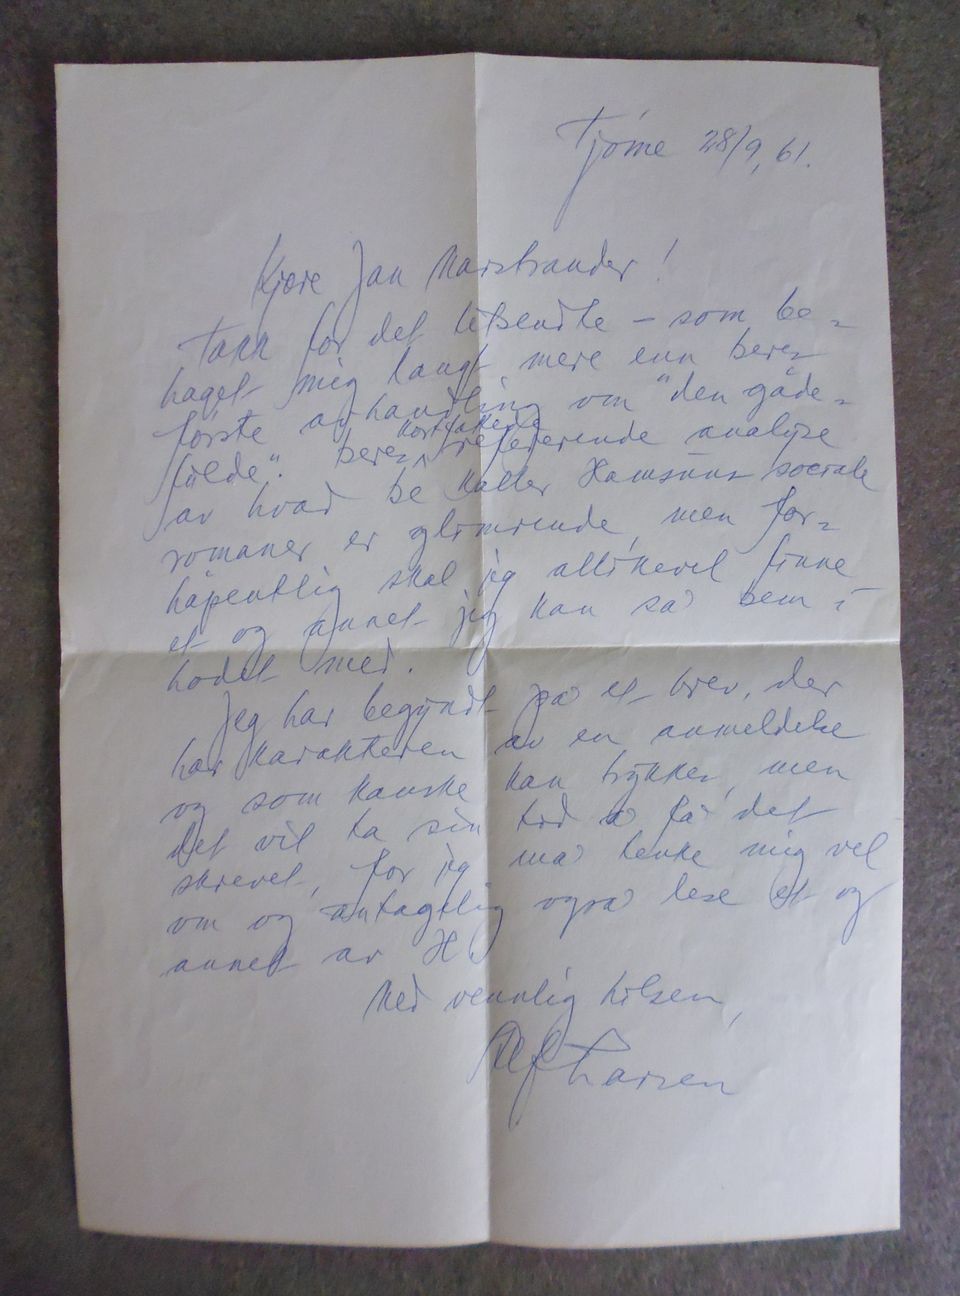 Tjøme 28/9, 61.
Kjære Jan Marstrander!
Takk for det tilsendte – som be-
haget mig langt mere enn Deres
første avhandling om "den gåde-
fulde". Deres kortfattede refererende analyse
av hvad De kaller Hamsuns sociale
romaner er glimrende, men for-
håpentlig skal jeg allikevel finne
et og annet jeg kan slå Dem i
hodet med.
Jeg har begyndt på et brev, der
har karakteren av en anmeldelse
og som kanske kan trykkes, men
det vil ta sin tid å få det
skrevet, for jeg må tenke mig vel
om og antagelig også lese et og
annet av H
Med vennlig hilsen,
Alf Larsen